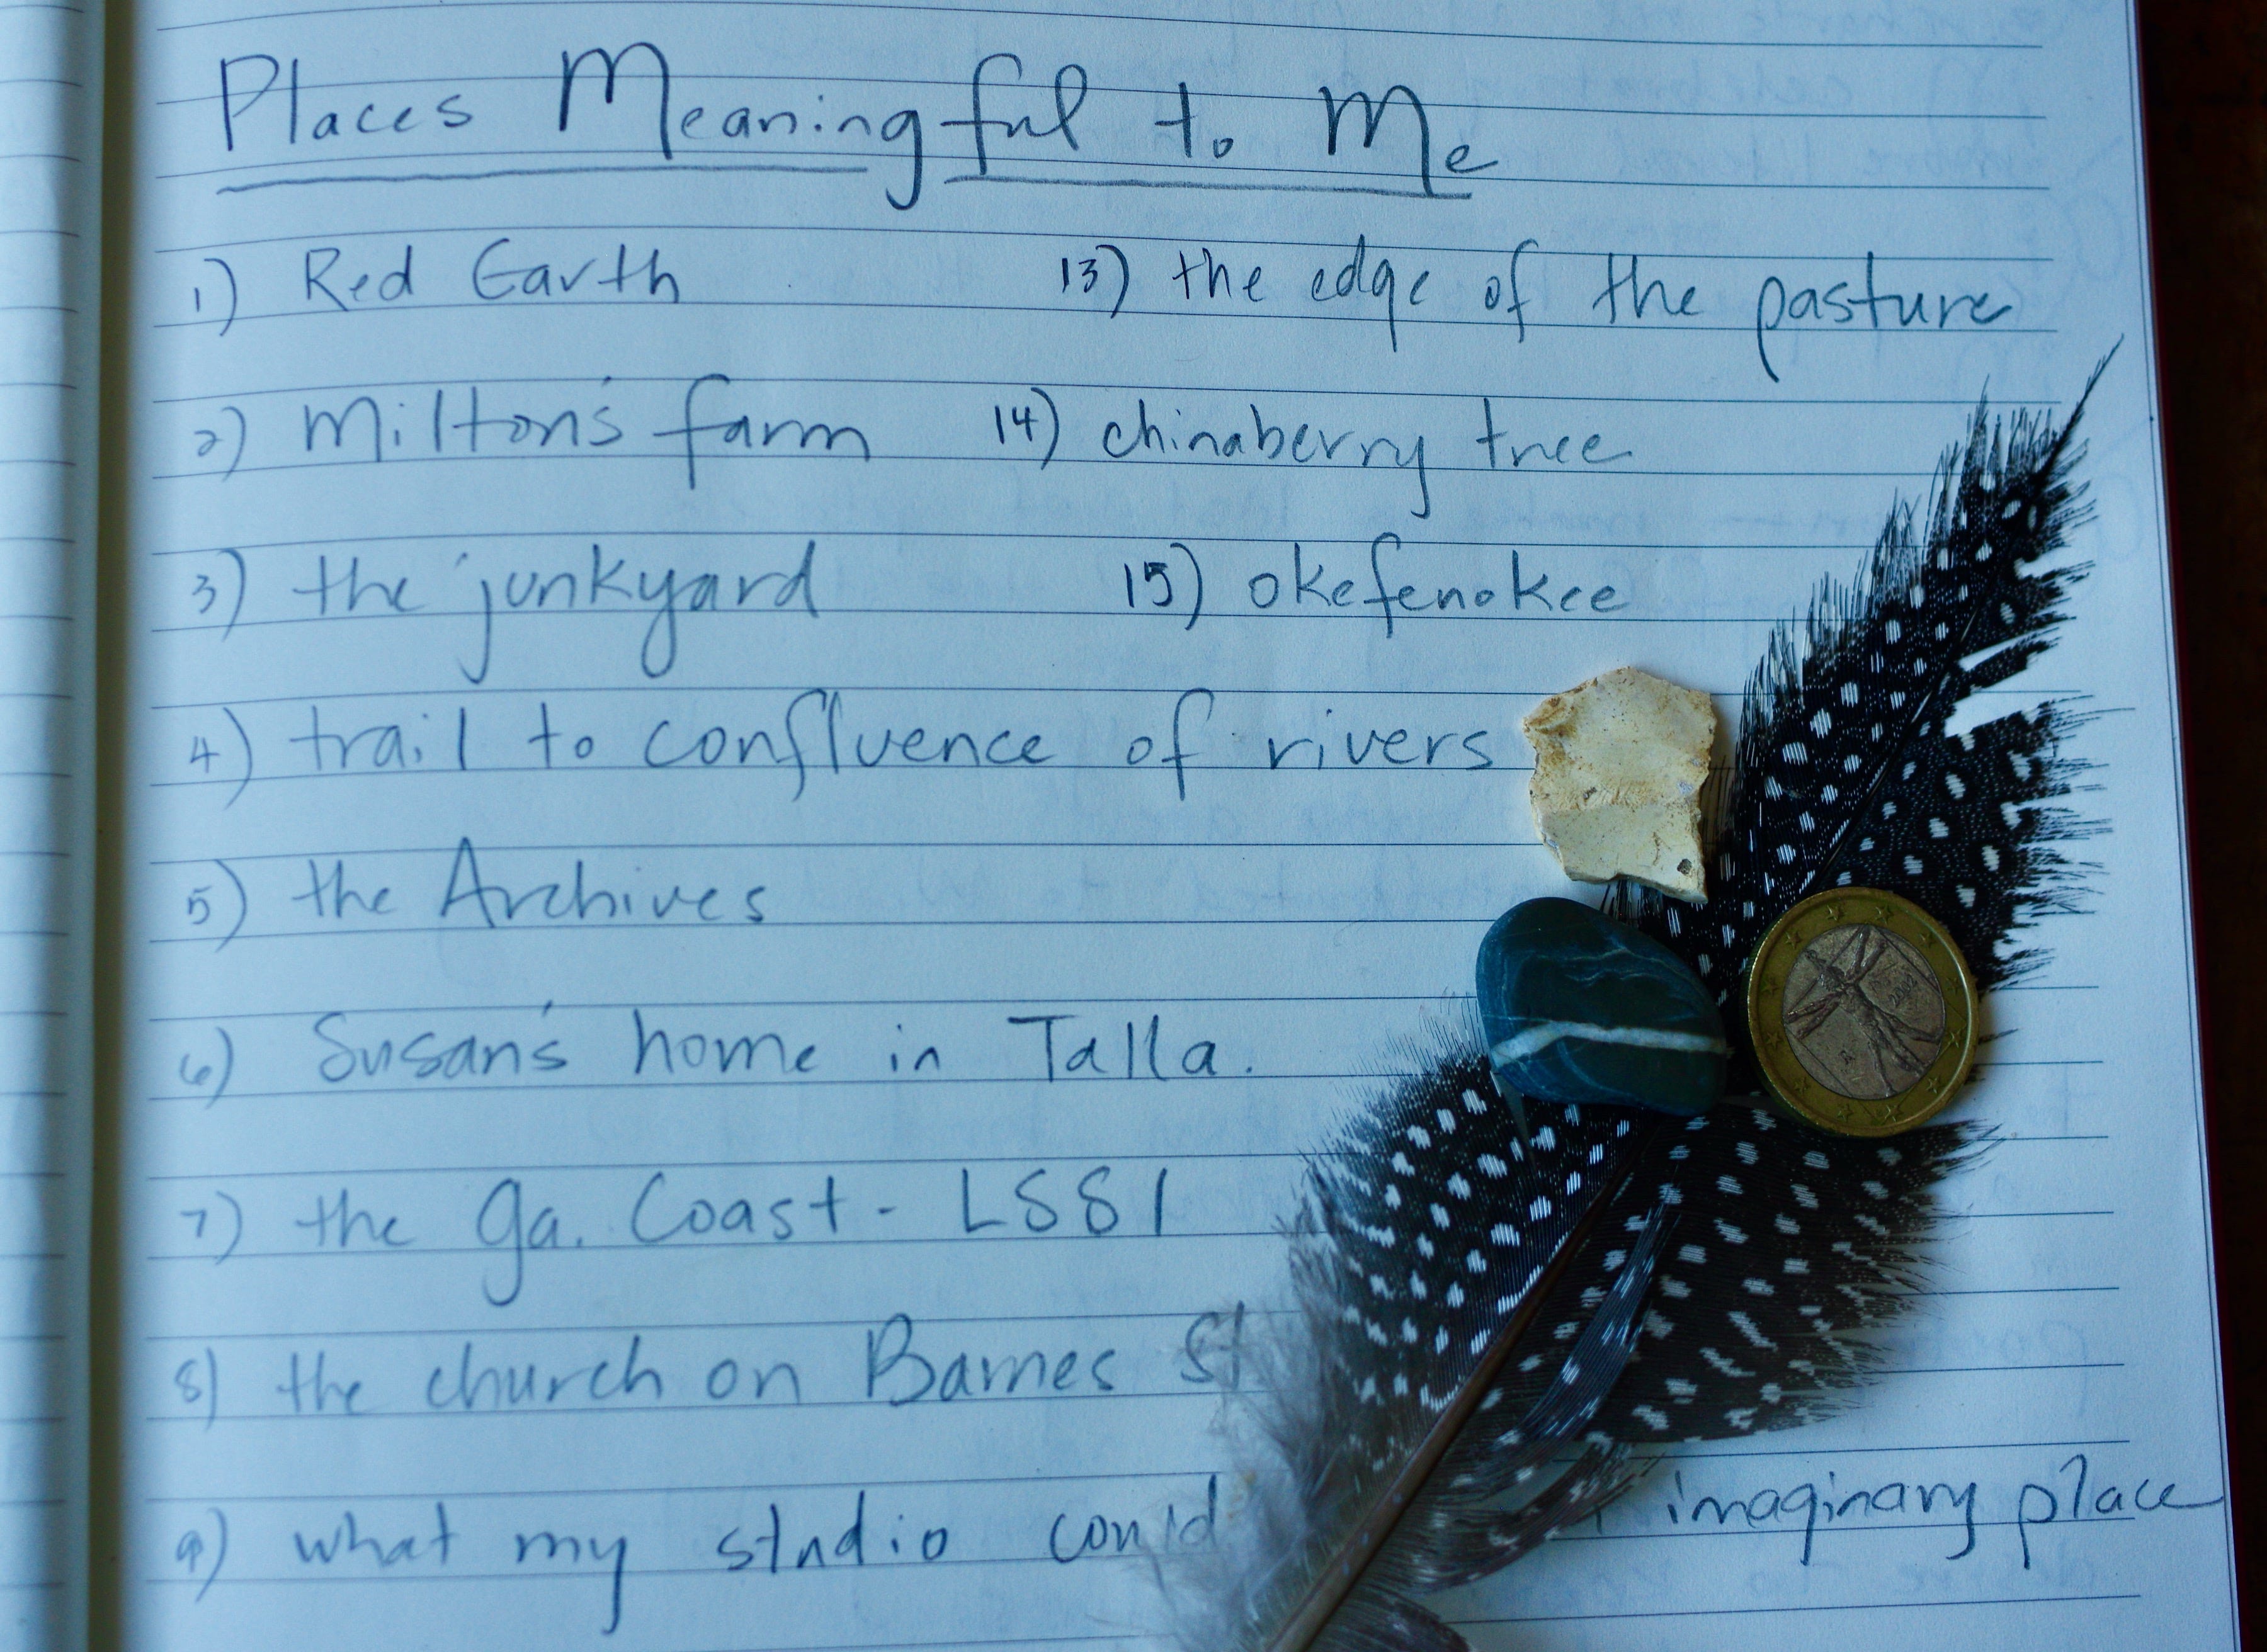 Places Meaningful to Me
1) Red Earth
2) Milton's farm
3) the junkyard
4) trail to confluence of rivers
5) the Archives
6) Susan's home in Talla.
7) the Ga. Coast - LSSI
8) the church on Barnes St
9) what my studio could imaginary place
13) the edge of the pasture
14) chinaberry tree
15) okefenokee
2002